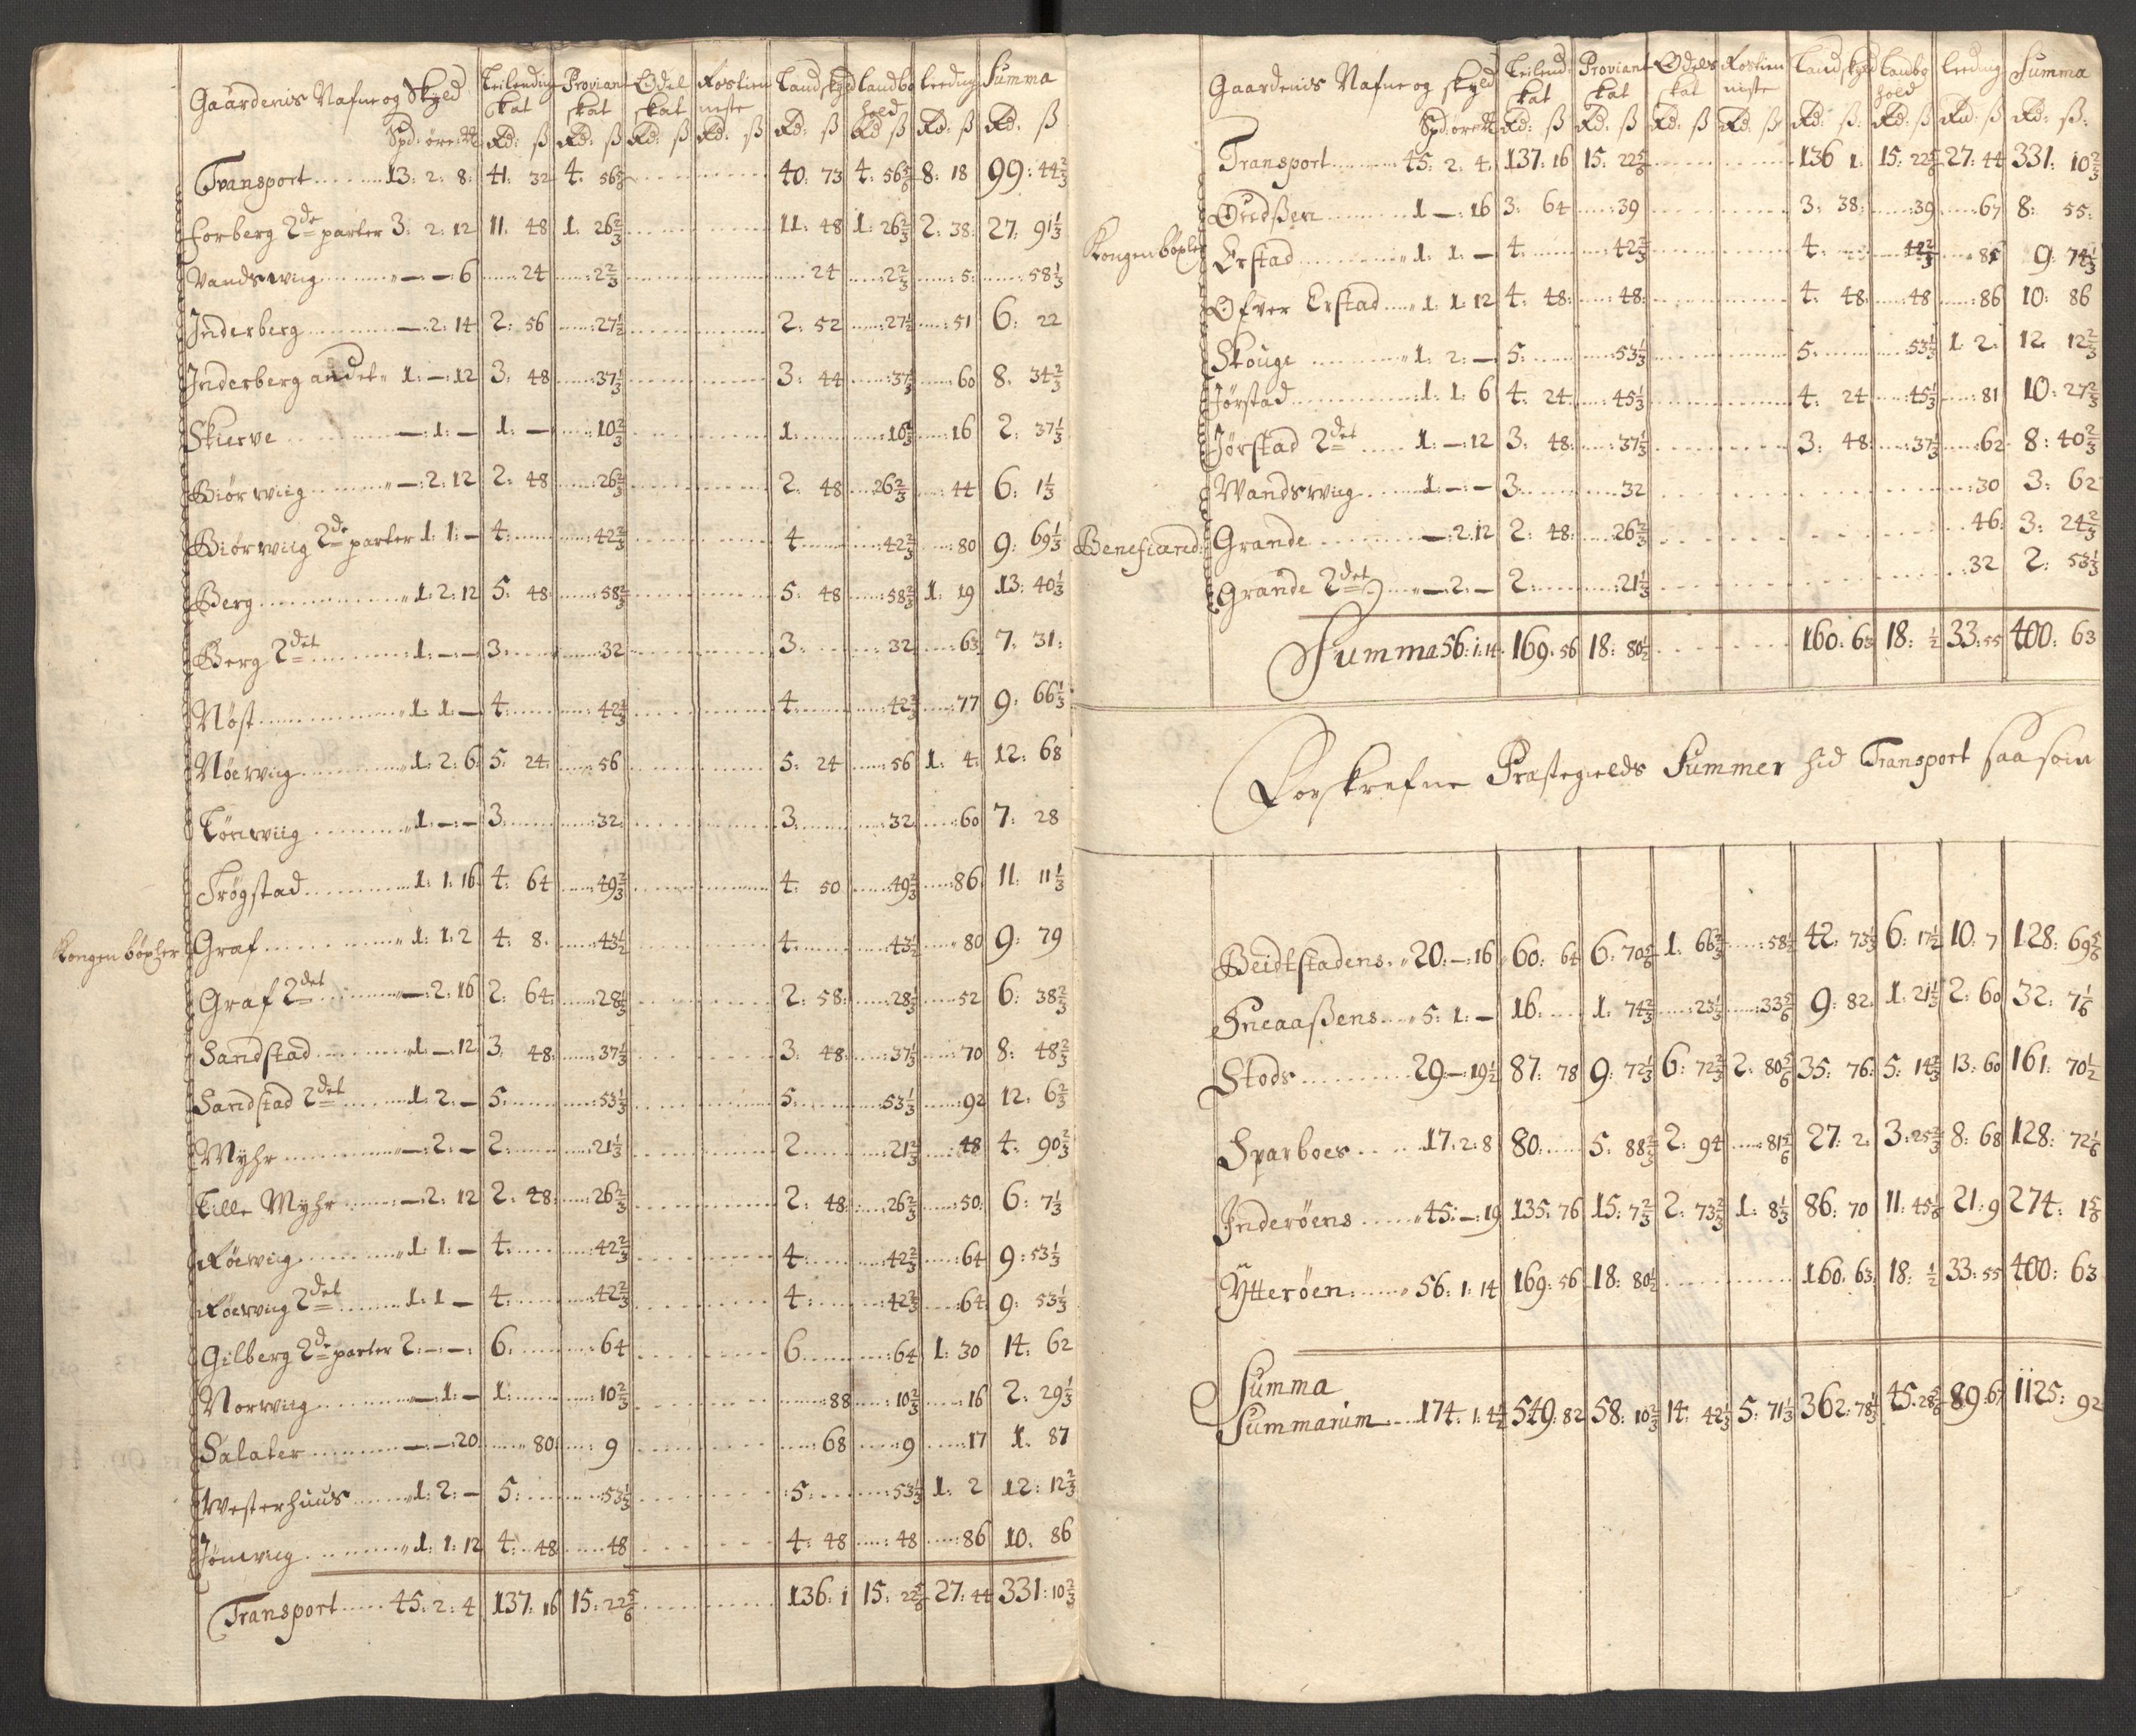 Gaardenis Nafne og Skyld Leilending skat Proviant skat Odel skat Rostien neste Landskyld Landbo hold Leeding Summa
Spd: øre: Rd: ß Rd: ß Rd: ß Rd: ß Rd: ß Rd ß Rd: ß Rd: ß
Transport 13: 2: 8: 41: 32 4: 56 5/6 40: 73 4: 56 5/6 8: 18 99: 44 2/3
Forberg 2de parter 3: 2: 12 11: 48 1: 26 2/3 11: 48 1: 26 2/3 2: 38: 27: 91 1/3
Vandswiig — — 6 24 2 2/3 24 2 2/3 5: 58 1/3
Inderberg —: 2: 14 2: 56 27 1/2 2: 52 27 1/2 51 6: 22
Inderberg andet 1: —: 12 3: 48 37 1/3 3: 44 37 1/3 60 8: 34 2/3
Skierve —: 1: — 1: — 10 2/3 1: 10 2/3 16 2: 37 1/3
Biörwiig —: 2: 12 2: 48 26 2/3 2: 48 26 2/3 44 6: 1 1/3
Biörwiig 2de parter 1: 1: — 4: 42 2/3 4 42 2/3 80 9: 69 1/3
Berg 1: 2: 12 5: 48 58 2/3 5: 48 58 2/3 1: 19 13: 40 1/3
Berg 2det 1: —: — 3: 32 3: 32 63 7: 31:
Nöst 1: 1: — 4: 42 2/3 4: 42 2/3 77 9: 66 1/3
Nöewiig 1: 2: 6 5: 24: 56 5: 24 56 1: 4: 12: 68
Lönwiig 1: —: — 3: 32: 3: 32 60 7: 28
Frögstad 1: 1: 16 4: 64 49 2/3 4: 50 49 2/3 86 11: 11 1/3
Kongen böxler Graf 1: 1: 2 4: 8: 43 1/2 4: 43 1/2 80 9: 79
Graf 2det —: 2: 16 2: 64: 28 1/3 2: 58: 28 1/3 52 6: 38 2/3
Sandstad 1: —: 12 3: 48: 37 1/3 3: 48: 37 1/3 70 8: 48 2/3
Sandstad 2det 1: 2: — 5: 53 1/3 5: 53 1/3 92 12: 6 2/3
Myhr —: 2: — 2: 21 1/3 2 21 1/3 48 4: 90 2/3
Lille Myhr —: 2: 12 2: 48: 26 2/3 2: 48: 26 2/3 50: 6: 7 1/3
Röewiig 1: 1: — 4: 42 2/3 4: 42 2/3 64 9: 53 1/3
Röewiig 2det 1: 1 — 4: 42 2/3 4: 42 2/3 64: 9: 53 1/3
Gilberg 2de parter 2: —: —: 6: 64 6 64 1: 30 14: 62
Norwiig —: 1: — 1: 10 2/3 88 10 2/3 16 2: 29 1/3
Salater —: —: 20 80: 9 68 9 17 1: 87
Westerhuus 1: 2: — 5: 53 1/3 5: 53 1/3 1: 2 12: 12 2/3
1: 1: 12 4: 48 48 4: 48 48 86 10: 86
Transport 45: 2: 4 137: 16 15: 22 5/6 136: 1 15: 22 5/6 27: 44 331: 10 2/3
Gaardenis Nafne og skyld Leilend: skat Proviant skat Odels skat Rostien neste Landskyld Landbo hold Leeding Summa
Spd: øre Rd: ß Rd: ß Rd: ß Rd: ß Rd: ß: Rd: ß Rd: ß Rd: ß:
Transport 45: 2: 4: 137: 16 15: 22 5/6 136 1: 15: 22 5/6 27: 44 331: 10 2/3
1 —: 16 3: 64 39 3: 38: 39 67 8: 55:
Kongen böxler Erstad 1: 1: — 4: 42 2/3 4: 42 2/3 81 9: 74 1/3
Öfver Erstad 1: 1: 12 4: 48: 48: 4: 48: 48 86 10: 86
Skouge 1: 2: — 5: 53 1/3 5: 53 1/3 1: 2: 12: 12 2/3
Jörstad 1: 1: 6 4: 24: 45 1/3 4: 24 45 1/3 81 10: 27 2/3
Jörstad 2det 1: —: 12 3: 48: 37 1/3 3: 48: 37 1/3 62 8: 40 2/3
Wandswiig 1: —: — 3: 32 30 3: 62
Benificered: Grande —: 2: 12 2: 48: 26 2/3 46: 3: 24 2/3
Grande 2det —: 2: — 2: 21 1/3 32 2: 53 1/3
Summa 56: 1: 14 169: 56 18: 80 1/2 160: 63 18: 1/2 33: 55 400: 63
Forskrefne Præstegields Summer hid Transport saasom
Beidtstadens 20: —: 16 60: 64 6: 70 5/6 1: 66 2/3 58 1/2 42: 73 1/3 6: 17 1/2 10: 7 128: 69 5/6
Sneaaßens 5: 1: — 16: 1: 74 2/3 23 1/3 33 5/6 9: 82: 1: 21 1/3 2: 60 32: 7 1/6
Stods 29: —: 19 1/2 87: 78 9: 72 1/3 6: 72 2/3 2: 80 5/6 35: 76: 5: 14 2/3 13: 60 161: 70 1/2
Sparboes 17: 2: 8 80: 5: 88 2/3 2: 94 81 5/6 27: 2: 3: 25 2/3 8: 68 128: 72 1/6
Inderöens 45: —: 19 135: 76 15: 7 2/3 2: 73 2/3 1: 8 1/3 86: 70 11: 45 1/6 21: 9 274: 1 5/6
Ytteröen 56: 1: 14 169: 56 18: 80 1/2 160: 63: 18: 1/2 33: 55 400: 63
Summa
Summarum 174: 1: 4 1/2 549: 82 58: 10 2/3 14: 42 1/3 5: 71 1/3 362: 78 1/3 45: 28 5/6 89: 67 1125: 92